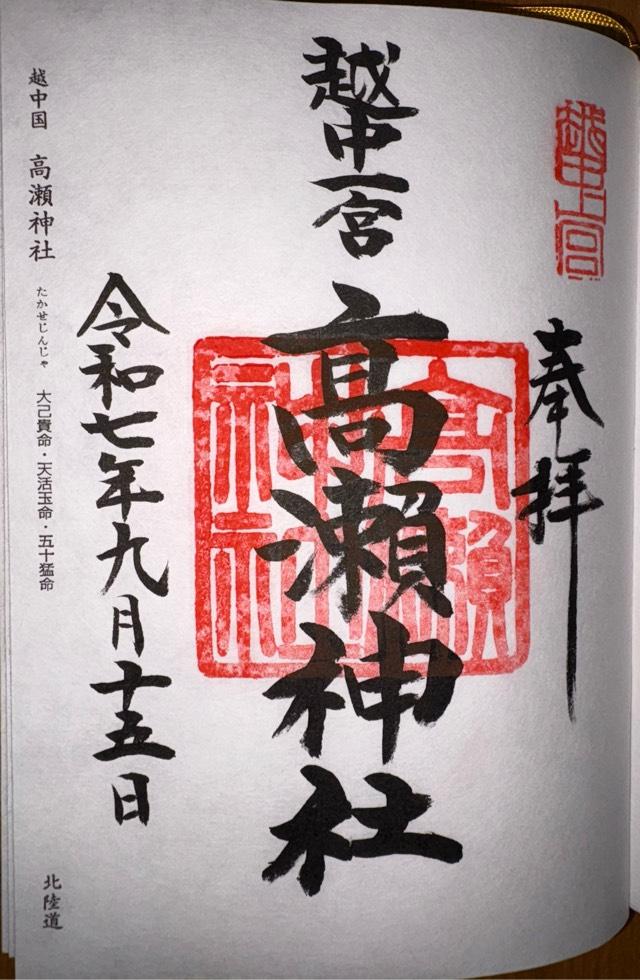 越中一宮
奉拝
越中一宮
高瀬神社
高瀬神社
令和七年九月十五日
越中国 高瀬神社 たかせじんじゃ 大己貴命・天活玉命・五十猛命
北陸道